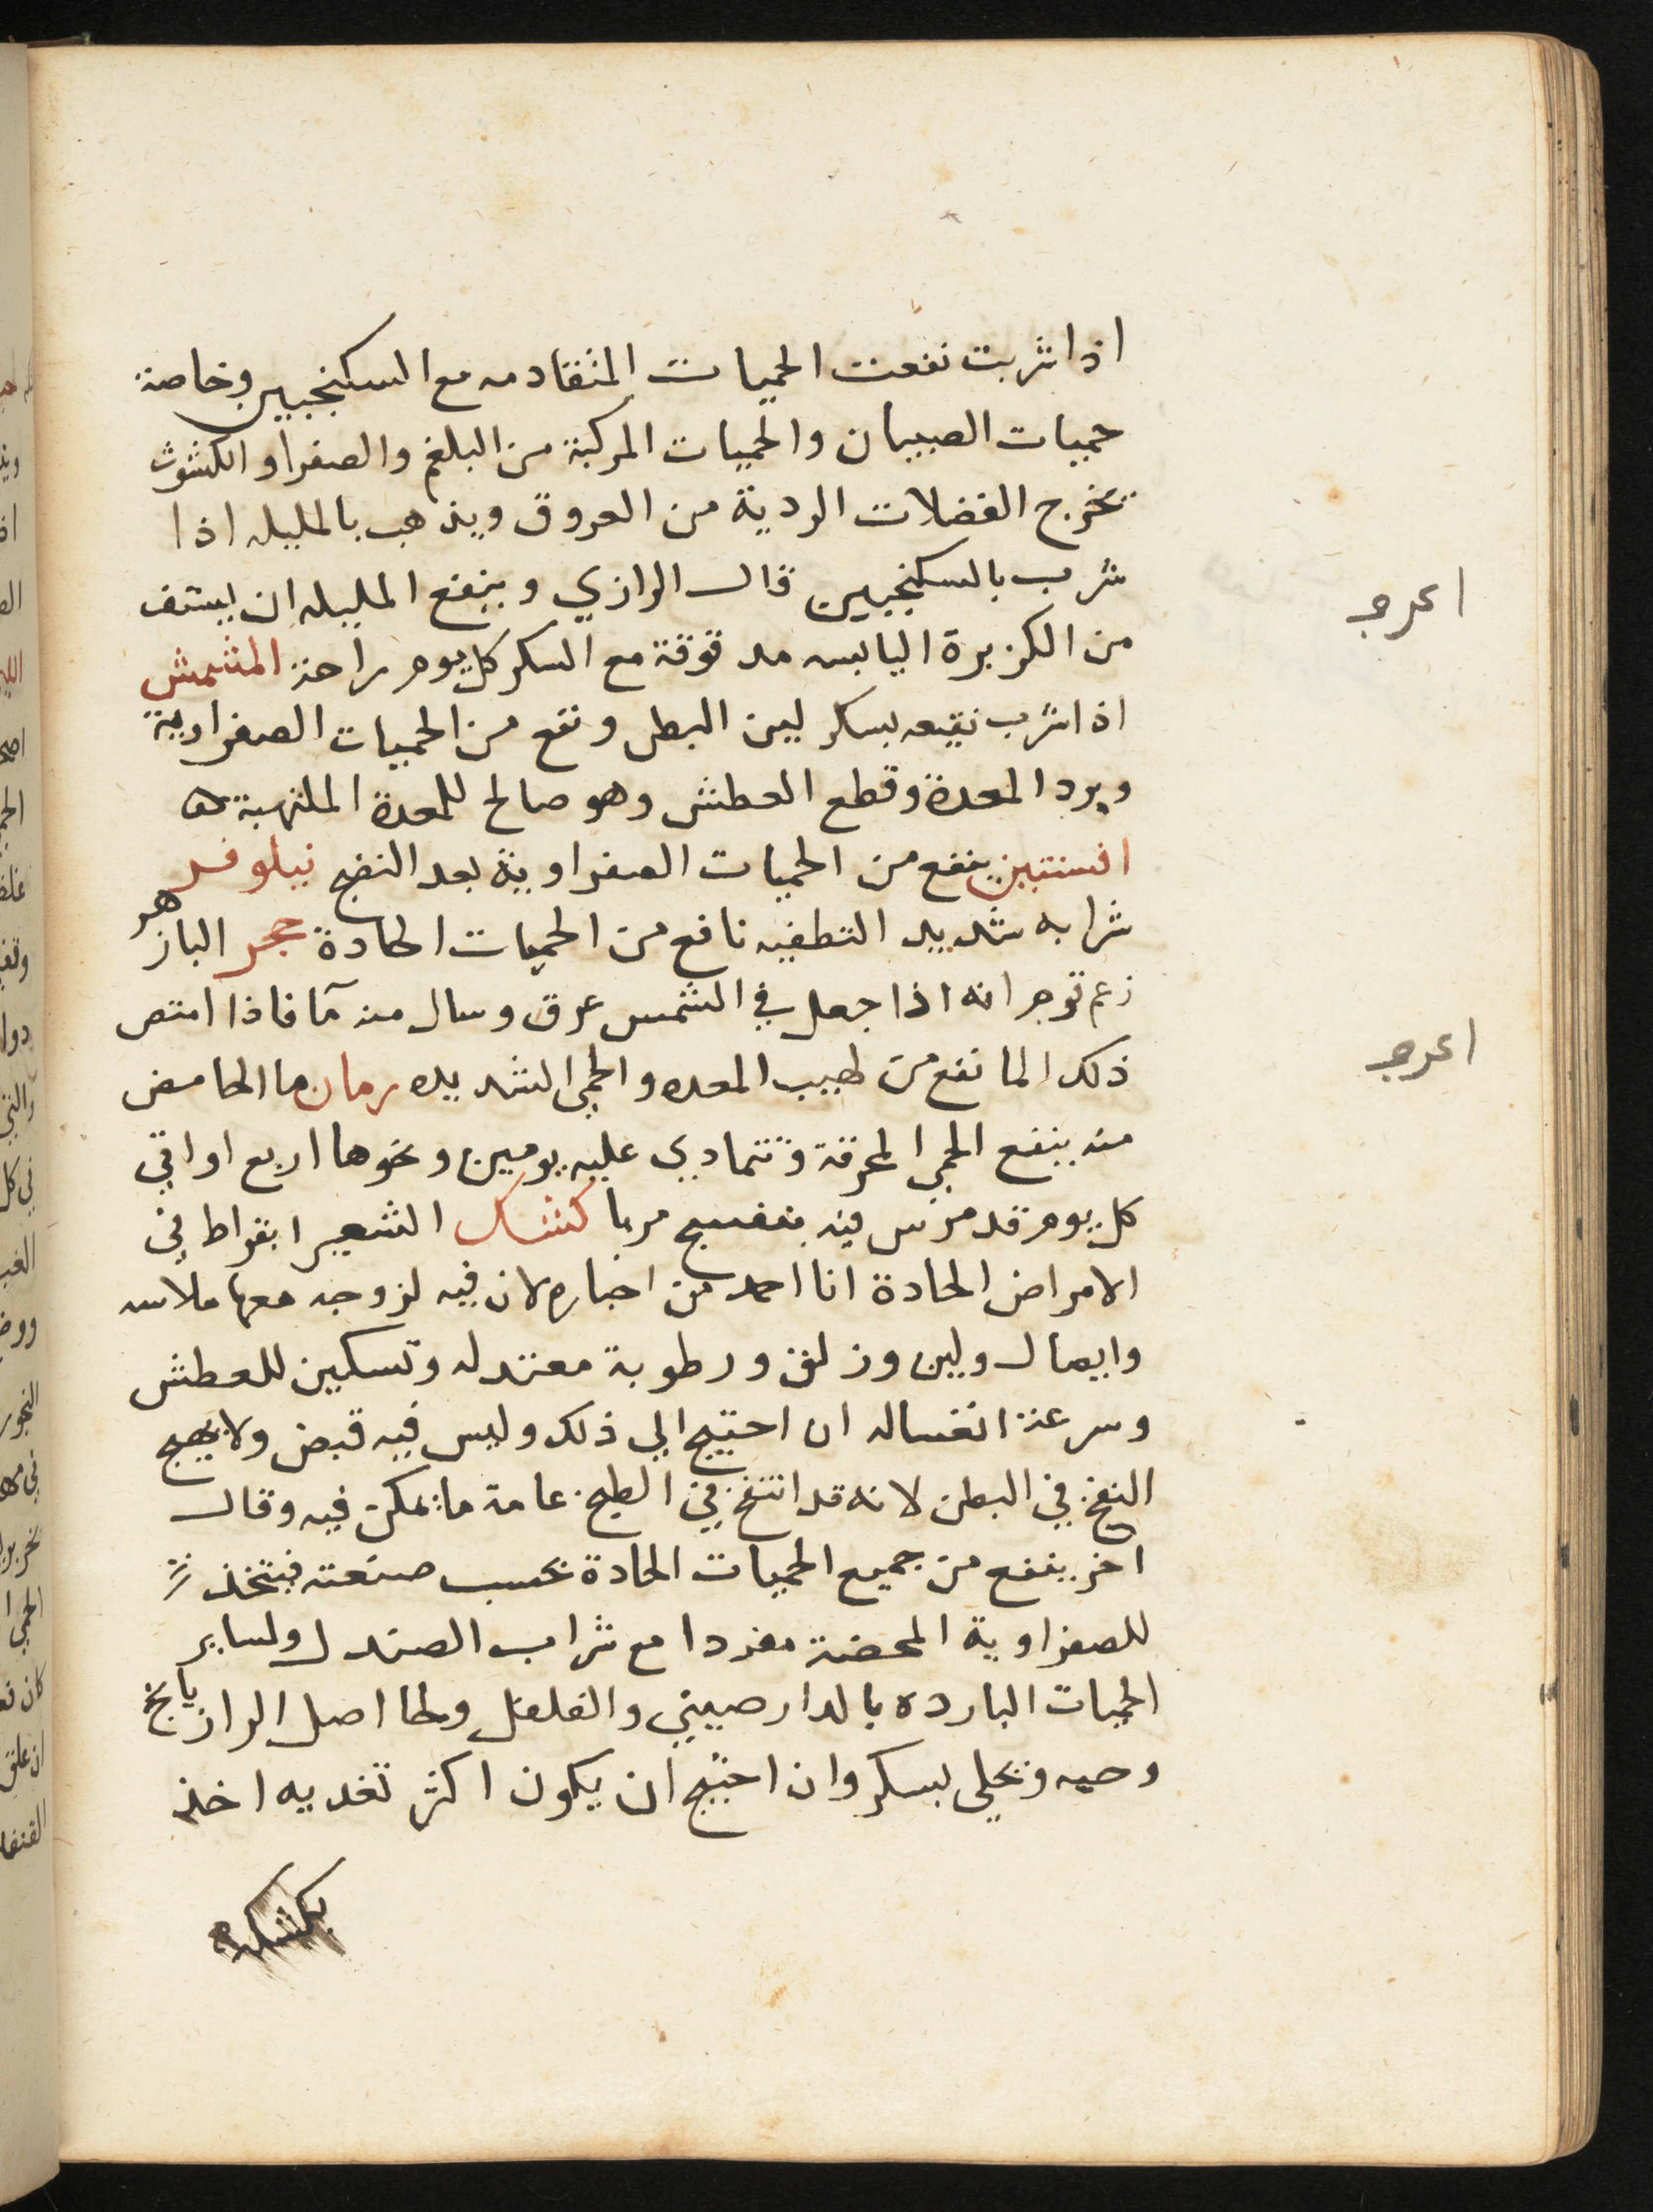 اذا شربت نفعت الحميات المتقادمه مع السكنجبين وخاصة
حميات الصبيان والحميات المركبة من البلغم والصفرا والكشوث
تخرج الفضلات الردية من العروق ويذهب بالمليله اذا
شرب بالسكنجبين قال الرازي وينفع المليله ان يستف
من الكزبرة اليابسه مدقوقة مع السكر كل يوم راحة المشمش
اذا شرب نقيعه بسكر لين البطن ونفع من الحميات الصفراوية
وبرد المعدة وقطع العطش وهو صالح للمعدة الملتهبة
افسنتين ينفع من الحميات الصفراوية بعد النضج نيلوفر
شرابه شديد التطفيه نافع من الحميات الحادة حجر البازهر
زعم قوم انه اذا جعل في الشمس عرق وسال منه مآ فاذا امتص
ذلك الما نفع من لهيب المعده والحمى الشديده رمان ما الحامض
منه ينفع الحمى المحرقة وتتمادي عليه يومين ونحوها اربع اواقي
كل يوم قد مرس فيه بنفسج مربا كشك الشعير ابقراط في
الامراض الحادة انا احمد من اختاره لان فيه لزوجه معها ملاسه
وايصال ولين وزلق ورطوبة معتدله وتسكين للعطش
وسرعة انغساله ان احتيج الي ذلك وليس فيه قبض ولا يهيج
النفخ في البطن لانه قد انتفخ في الطبخ عامة ما يمكن فيه وقال
اخر ينفع من جميع الحميات الحادة بحسب صنعته فيتخذ
للصفراوية المحضة مفردا مع شراب الصندل ولساير
الحميات البارده بالدارصيني والفلفل ولحا اصل الرازيانج
وحبه ويحلى بسكر وان احتيج ان يكون اكثر تغديه اخذ
بكشكه